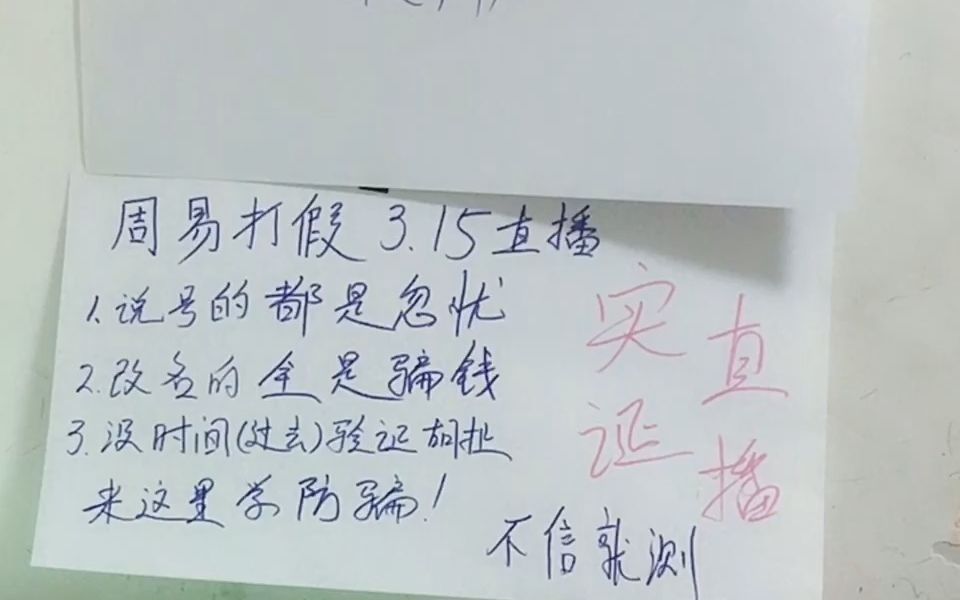 周易打假 3.15直播
1.说号的都是忽忧
2.改名的全是骗钱
3.没时间(过去)验证胡扯
来这里学防骗!
不信就测
实证
直播